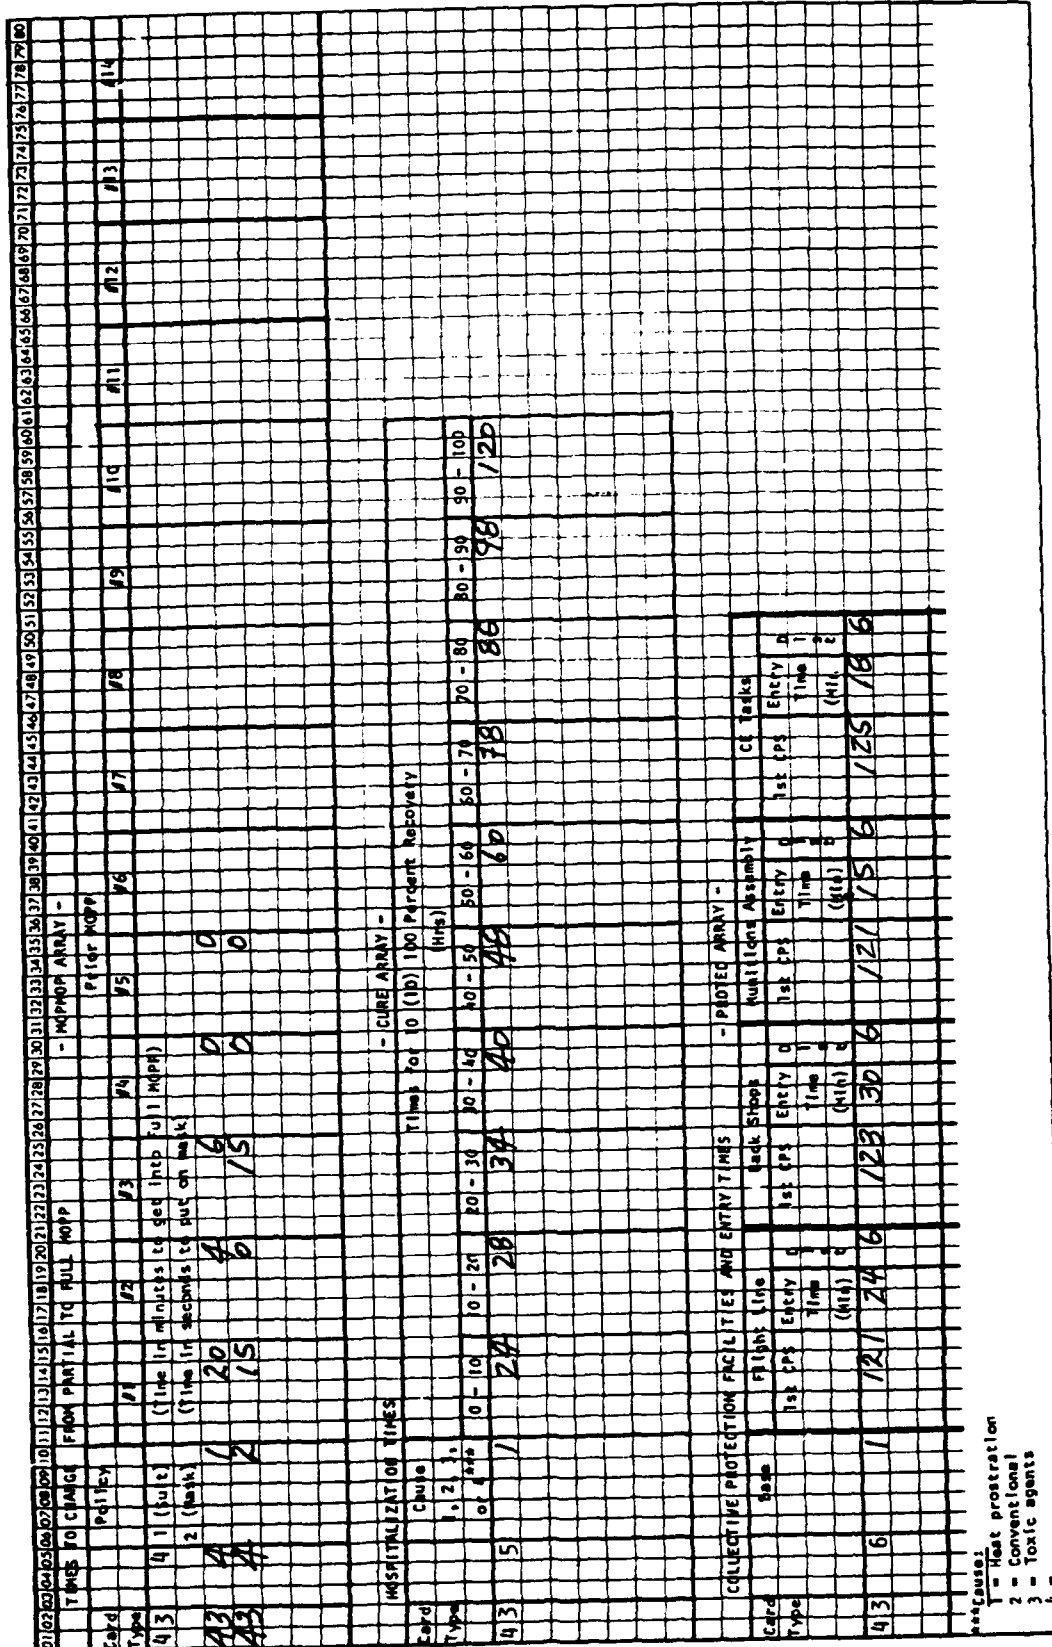 01 02 03 04 05 06 07 08 09 10 11 12 13 14 15 16 17 18 19 20 21 22 23 24 25 26 27 28 29 30 31 32 33 34 35 36 37 38 39 40 41 42 43 44 45 46 47 48 49 50 51 52 53 54 55 56 57 58 59 60 61 62 63 64 65 66 67 68 69 70 71 72 73 74 75 76 77 78 79 80
TIMES TO CHANGE FROM PARTIAL TO FULL MOPP - MOPMOP ARRAY -
Card Type Policy Prior MOPP
#1 #2 #3 #4 #5 #6 #7 #8 #9 #10 #11 #12 #13 #14
43 4 1 (Suit) (Time in minutes to get into full MOPP)
2 (Mask) (Time in seconds to put on mask)
43 4 1 20 4 6 0 0
43 4 2 15 0 15 0 0
HOSPITALIZATION TIMES - CURE ARRAY -
Card Type Cause 1, 2, 3, or 4*** Times for 10 (10) 100 Percent Recovery
(Hrs)
0 - 10 10 - 20 20 - 30 30 - 40 40 - 50 50 - 60 60 - 70 70 - 80 80 - 90 90 - 100
43 5 1 24 28 34 40 48 60 78 86 98 120
COLLECTIVE PROTECTION FACILITIES AND ENTRY TIMES - PROTED ARRAY -
Card Type Base Flight Line Back Shops Munitions Assembly CE Tasks
1st CPS Entry Time (Min) Dist 1st CPS Entry Time (Min) Dist 1st CPS Entry Time (Min) Dist 1st CPS Entry Time (Min) Dist
43 6 1 121 24 6 123 30 6 121 15 6 125 18 6
***Cause:
1 = Heat prostration
2 = Conventional
3 = Toxic agents